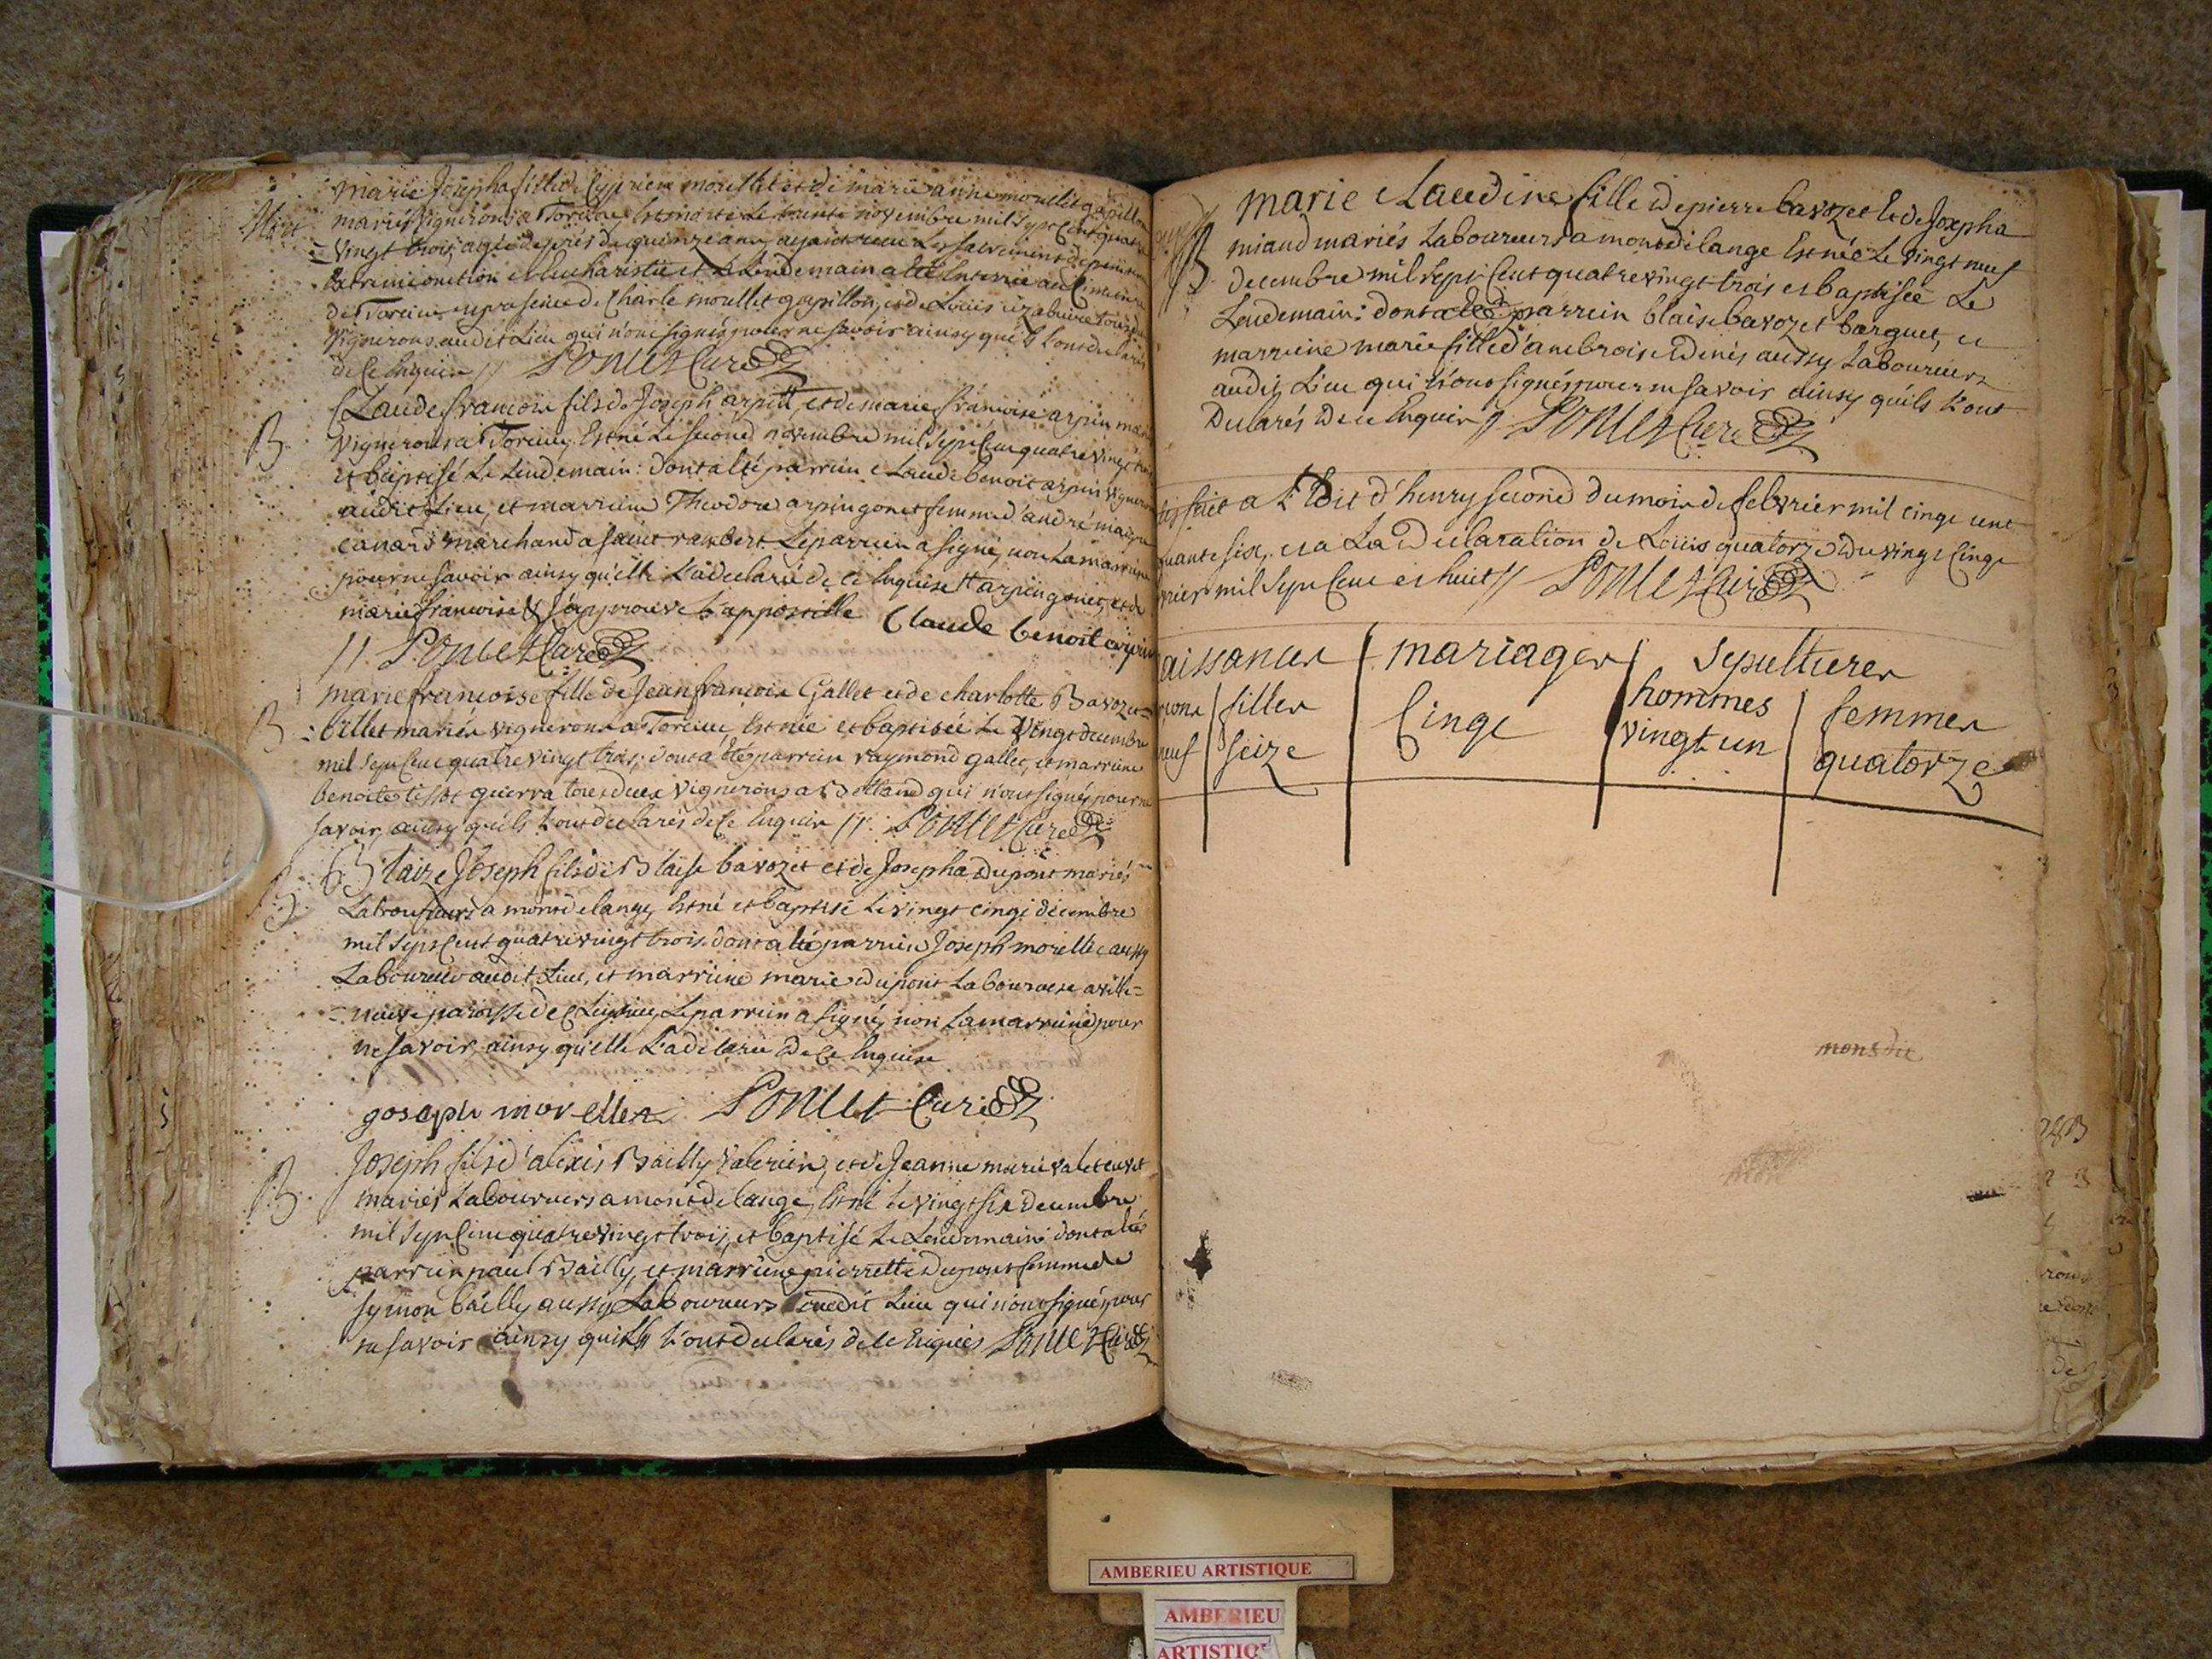 Mort
marie Josepha fille de Cyprien moullet et de marie anne moullet gapillon
mariés vignerons a Torcieu, est morte Le trente novembre mil sept Cent quatre
= vingt trois, agée de près de quinze ans, ayant recu Les sacremens de penitence
extremeonction et Eucharistie et Le Lendemain a été Enterrée au Cimetiere
de Torcieu en presence de Charle moullet gapillon, et de Louis
vignerons audit Lieu qui n'ont signés pour ne savoir ainsy qu'ils L'ont declarés
de ce Enquis // Poncet Curé
B
Claude francois fils de Joseph arpin, et de marie francoise arpin mariés
vignerons a Torcieu, Est né Le second novembre mil sept Cent quatre vingt trois
et baptisé Le Lendemain: dont a été parrein Claude benoit arpin vigneron
audit Lieu, et marreine Theodore arpin gonet femme d'andré
canard marchand a saint rambert Le parrein a signé, non La marreine
pour ne savoir ainsy qu'elle L'a declaré de ce Enquise # arpin gonet, et de
marie francoise & J'approuve L'appostille Claude benoit arpin
// Poncet Curé
B
marie francoise fille de Jean francois Gallet et de charlotte Bavozet
= billet mariés vignerons a Torcieu Est née et baptisée Le vingt decembre
mil sept Cent quatre vingt trois; dont a été parrein raymond gallet, et marreine
benoite tissot guerra tous deux vignerons a Bettand qui n'ont signés pour ne
savoir ainsy qu'ils L'ont declarés de ce Enquis // Poncet Curé
B
Blaize Joseph fils de Blaise bavozet et de Josepha dupont mariés
Laboureurs a mont de lange, Est né et baptisé Le vingt cinqe décembre
mil sept Cent quatre vingt trois dont a été parrein Joseph morelle aussy
Laboureur audit Lieu, et marreine marie dupont Laboureuse a ville=
= neuve paroisse de Cleyzieu, Le parrein a signé, non La marreine pour
ne savoir, ainsy qu'elle L'a declaré de ce Enquise
gosaple morelle Poncet Curé
B
Joseph fils d'alexis Bailly valerien, et de Jeanne marie
mariés Laboureurs a mont de lange, Est né Le vingt six decembre
mil sept Cent quatre vingt trois, et baptisé Le Lendemain: dont a été
parrein paul Bailly, et marreine pierrette dupont femme de
symon bailly aussy Laboureurs audit Lieu qui n'ont signés pour
ne savoir ainsy qu'ils L'ont declarés de ce Enquis Poncet Curé
B
marie Claudine fille de pierre bavozet et de Josepha
miand mariés Laboureurs a mont de lange Est née Le vingt neuf
decembre mil sept Cent quatre vingt trois et baptisée Le
Lendemain: dont a été parrein blaise bavozet barguet, et
marreine marie fille d'ambroise denis aussy Laboureurs
audit Lieu qui n'ont signés pour ne savoir ainsy qu'ils L'ont
Declarés de ce Enquis // Poncet Curé
fait a L'Edit d'henry second du mois de febvrier mil cinqe cent
quante six, et a La Declaration de Louis quatorze du vingt Cinqe
vrier mil sept Cent et huit // Poncet Curé
aissances mariages sepultures
filles Cinqe hommes femmes
neuf seize vingt un quatorze
AMBERIEU ARTISTIQUE
AMBERIEU
ARTISTIQ